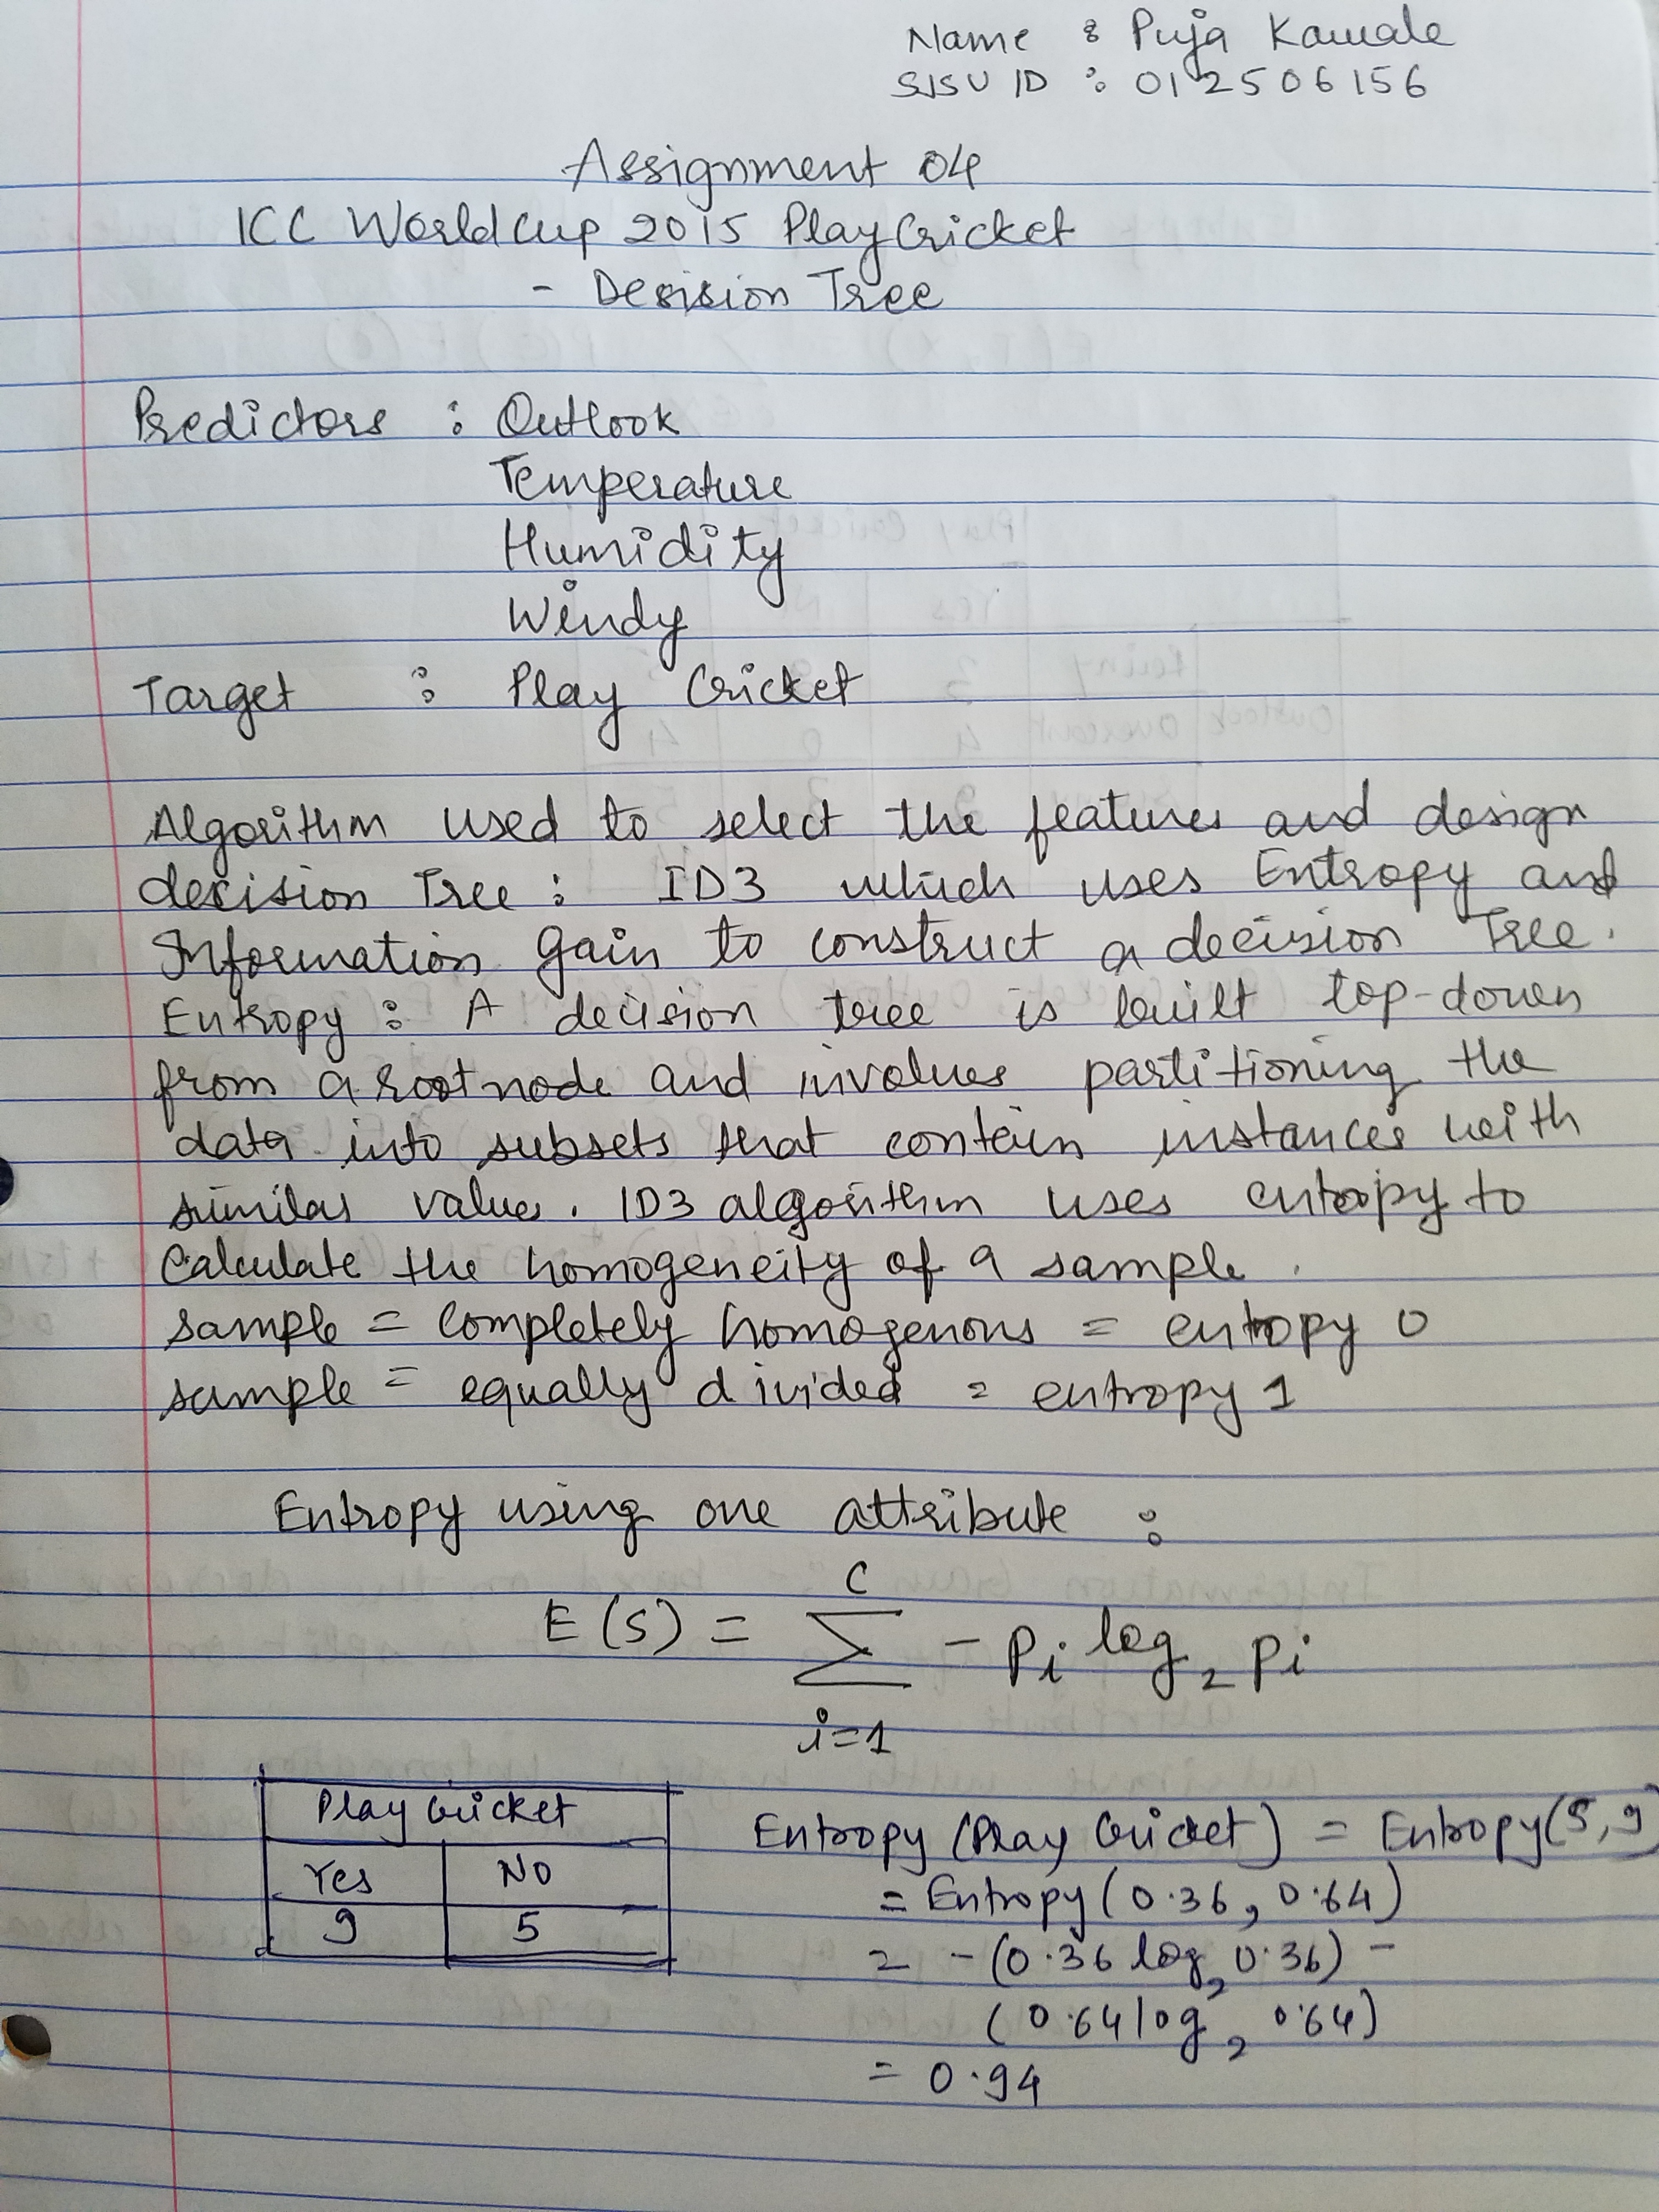 Name : Puja Kawale
SJSU ID : 012506156
Assignment 04
ICC WorldCup 2015 PlayCricket
- Desision Tree
Predictors : Outlook
Temperature
Humidity
Windy
Target : Play Cricket
Algorithm used to select the features and design
decision Tree : ID3 which uses Entropy and
Information gain to construct a decision Tree.
Entropy : A decision tree is built top-down
from a root node and involves partitioning the
data into subsets that contain instances with
similar value. ID3 algorithm uses entropy to
Calculate the homogeneity of a sample.
sample = Completely homogenous = entropy 0
sample = equally divided = entropy 1
Entropy using one attribute :
C
E(S) = ∑ - Pi log₂ Pi
i=1
Play Cricket
Yes No
9 5
Entropy (Play Cricket) = Entropy(5,9)
= Entropy (0.36, 0.64)
= - (0.36 log₂ 0.36) -
(0.64 log₂ 0.64)
= 0.94